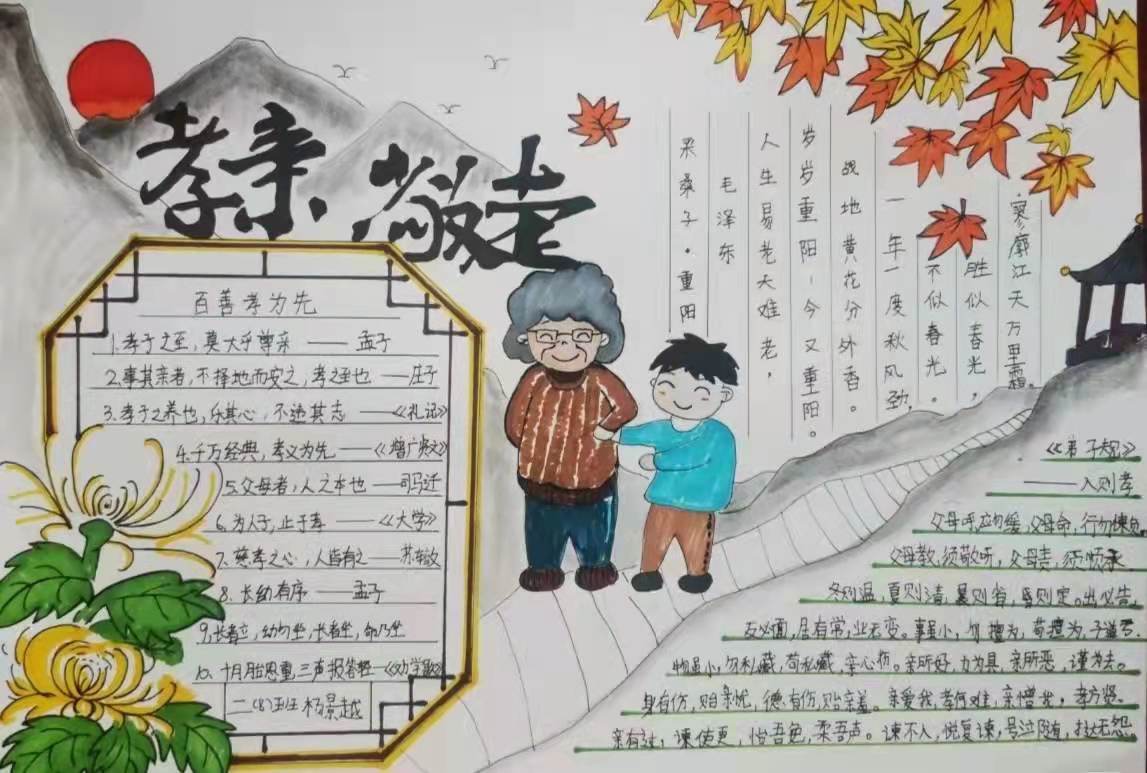 孝亲 敬老
百善孝为先
1.孝子之至，莫大乎尊亲 —— 孟子
2.事其亲者，不择地而安之，孝之至也 ——庄子
3.孝子之养也，乐其心，不违其志 ——《礼记》
4.千万经典，孝义为先 ——《增广贤文》
5.父母者，人之本也 ——司马迁
6.为人子，止于孝 ——《大学》
7.慈孝之心，人皆有之——苏辙
8.长幼有序 ——孟子
9.长者立，幼勿坐，长者坐，命乃坐
10.十月胎恩重，三声报答轻 ——《劝孝歌》
二(8)班 杨景越
采桑子·重阳
毛泽东
人生易老天难老，
岁岁重阳，今又重阳。
战地黄花分外香。
一年一度秋风劲，
不似春光。
胜似春光，
寥廓江天万里霜。
《弟子规》
——入则孝
父母呼，应勿缓，父母命，行勿懒
父母教，须敬听，父母责，须顺承
冬则温，夏则清，晨则省，昏则定。出必告，
反必面，居有常，业无变。事虽小，勿擅为，苟擅为，子道亏
物虽小，勿私藏，苟私藏，亲心伤。亲所好，力为具，亲所恶。谨为去。
身有伤，贻亲忧，德有伤，贻亲羞。亲爱我，孝何难，亲憎我，孝方贤。
亲有过，谏使更，怡吾色，柔吾声。谏不入，悦复谏，号泣随，挞无怨。